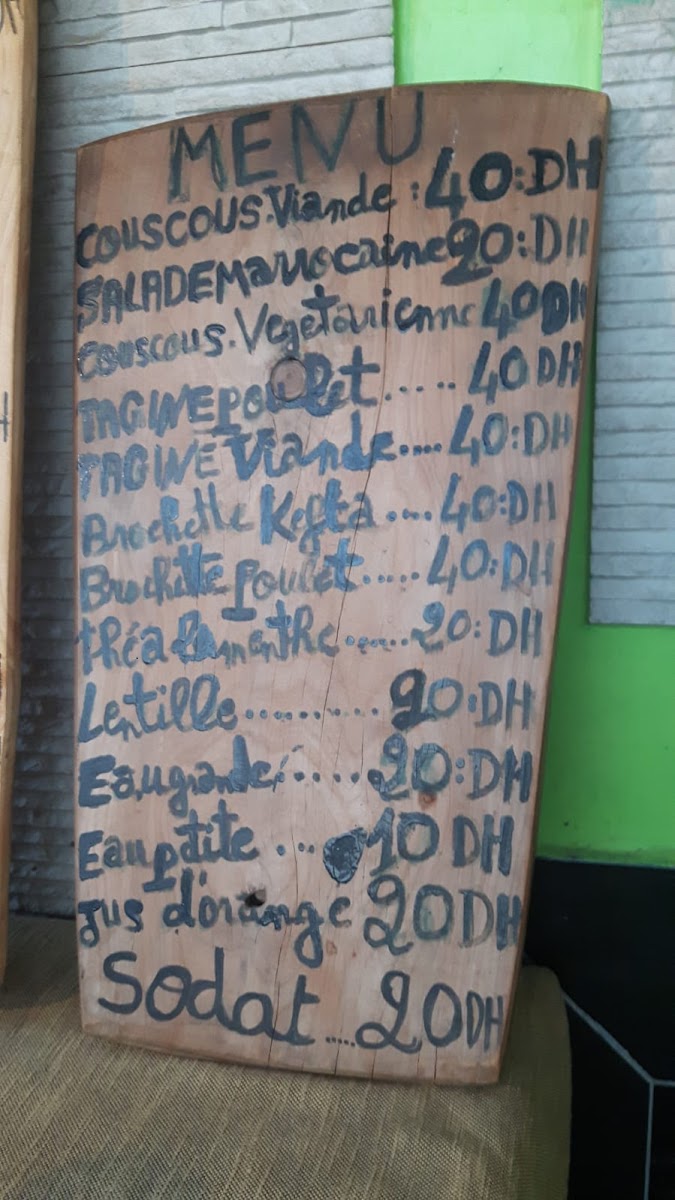 MENU
COUSCOUS.Viande : 40:DH
SALADE Marrocaine 20:DH
Couscous.Vegetarienne 40DH
TAGINE poulet ..... 40DH
TAGINE Viande.... 40:DH
Brochette Kefta .... 40:DH
Brochette poulet..... 40:DH
théa la menthe ...... 20:DH
Lentille.......... 20:DH
Eau grande ...... 20:DH
Eau ptite ... 10 DH
Jus d'orange 20DH
Sodat ..... 20DH